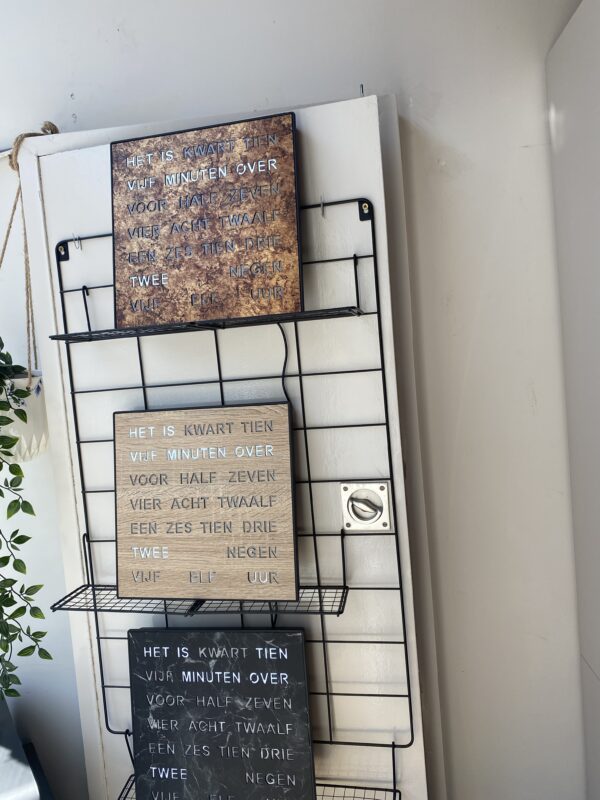 HET IS KWART TIEN
VIJF MINUTEN OVER
VOOR HALF ZEVEN
VIER ACHT TWAALF
EEN ZES TIEN DRIE
TWEE NEGEN
VIJF ELF UUR
HET IS KWART TIEN
VIJF MINUTEN OVER
VOOR HALF ZEVEN
VIER ACHT TWAALF
EEN ZES TIEN DRIE
TWEE NEGEN
VIJF ELF UUR
HET IS KWART TIEN
VIJF MINUTEN OVER
VOOR HALF ZEVEN
VIER ACHT TWAALF
EEN ZES TIEN DRIE
TWEE NEGEN
VIJF ELF UUR